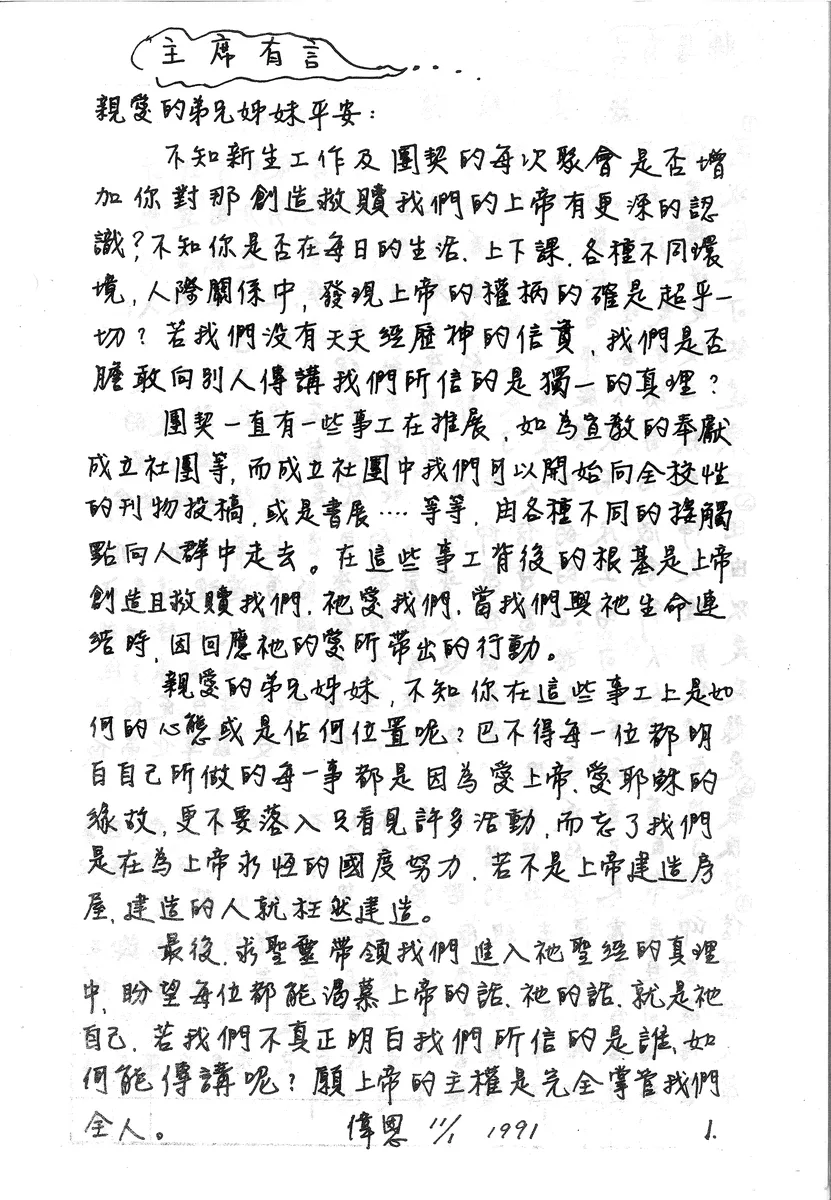 主席有言....
親愛的弟兄姊妹平安：
不知新生工作及團契的每次聚會是否增
加你對那創造救贖我們的上帝有更深的認
識？不知你是否在每日的生活．上下課．各種不同環
境，人際關係中，發現上帝的權柄的確是超乎一
切？若我們没有天天經歷神的信實，我們是否
膽敢向別人傳講我們所信的是獨一的真理？
團契一直有一些事工在推展，如為宣教的奉獻
成立社團等，而成立社團中我們可以開始向全校性
的刊物投稿，或是書展····等等，由各種不同的接觸
點向人群中走去。在這些事工背後的根基是上帝
創造且救贖我們．祂愛我們．當我們與祂生命連
結時，因回應祂的愛所带出的行動。
親愛的弟兄姊妹，不知你在這些事工上是如
何的心態或是佔何位置呢？巴不得每一位都明
白自己所做的每一事都是因為愛上帝、愛耶穌的
緣故，更不要落入只看見許多活動，而忘了我們
是在為上帝永恆的國度努力．若不是上帝建造房
屋，建造的人就枉然建造。
最後，求聖靈帶領我們進入祂聖經的真理
中，盼望每位都能渴慕上帝的話．祂的話．就是祂
自己．若我們不真正明白我們所信的是誰、如
何能傳講呢？願上帝的主權是完全掌管我們
全人。 偉恩 11/1 1991 1.